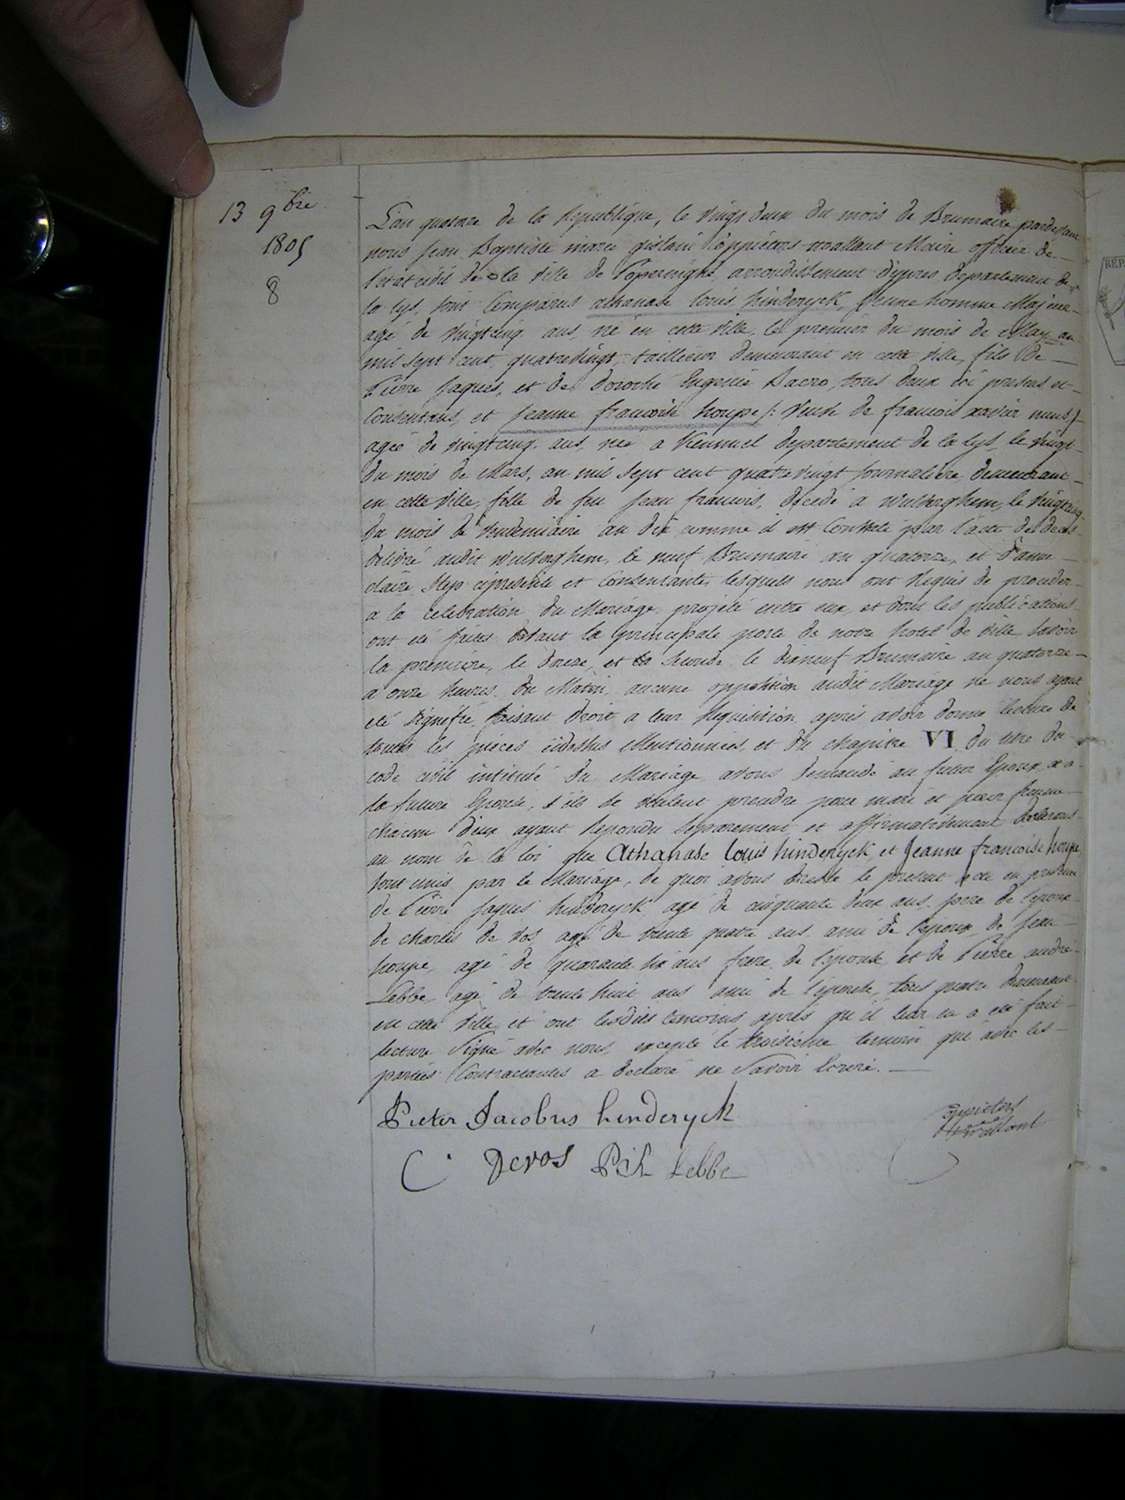 13 9bre
1805
8
L'an quatorze de la République, le vingt deux du mois de Brumaire pardevant
nous Jean Baptiste marie gislain Maire officier de
l'etat civil de la ville de Poperinghe arrondissement d'ypres departement de
la lys, sont Comparus athanase louis hinderyck, jeune homme Majeur
agé de vingtcinq ans, né en cette ville le premier du mois de May an
mil sept cent quatrevingt, tailleur demeurant en cette ville, fils de
Pierre Jaques, et de dorothé Eugenie Bacro, tous deux ici presens et
Consentans, et Jeanne francoise houpe /: veuve de francois xavier
ageé de vingtcinq ans, neé a Kemmel departement de la lys le vingt
du mois de Mars, an mil sept cent quatrevingt Journaliere demeurant
en cette ville fille de feu Jean francois, decedé a wulverghem, le
du mois de vendemiaire an dix comme il est Constaté par l'acte de deces
delivré audit wulverghem, le neuf Brumaire an quatorze, et d'anne
claire ciprésente et consentante, lesquels nous ont requis de proceder
a la celebration du Mariage projeté entre eux et dont les publications
ont été faites devant la principale porte de notre hotel de ville, savoir
la premiere, le douze, et la seconde le dixneuf Brumaire an quatorze
a onze heures du Matin, aucune opposition audit Mariage ne nous ayant
eté signifié, faisant droit a leur requisition, après avoir donné lecture de
toutes les pièces cidessus Mentionnées et du chapitre VI du titre du
code civil intitulé du Mariage avons demandé au futur Epoux, et a
la future Epouse, s'ils se veulent prendre pour mari et pour femme
chacun d'eux ayant repondu separement et affirmativement declarons
au nom de la loi que Athanase louis hinderyck, et Jeanne francoise houpe,
sont unis par le Mariage, de quoi avons dressé le present acte en presence
de Pierre Jaques hinderyck agé de cinquante deux ans, pere de l'epoux
de charles de vos, agé de trente quatre ans, ami de l'epoux, de Jean
houpe, agé de quarante six ans frere de l'epouse et de Pierre
Lebbe agé de trente huit ans ami de l'epouse, tous quatre demeurant
en cette ville et ont lesdits temoins après qu'il leur en a été fait
lecture signé avec nous, excepté le troisième temoin qui avec les
parties Contractantes a declaré ne savoir ecrire.
Pieter Jacobus hinderyck
C Devos P: Lebbe